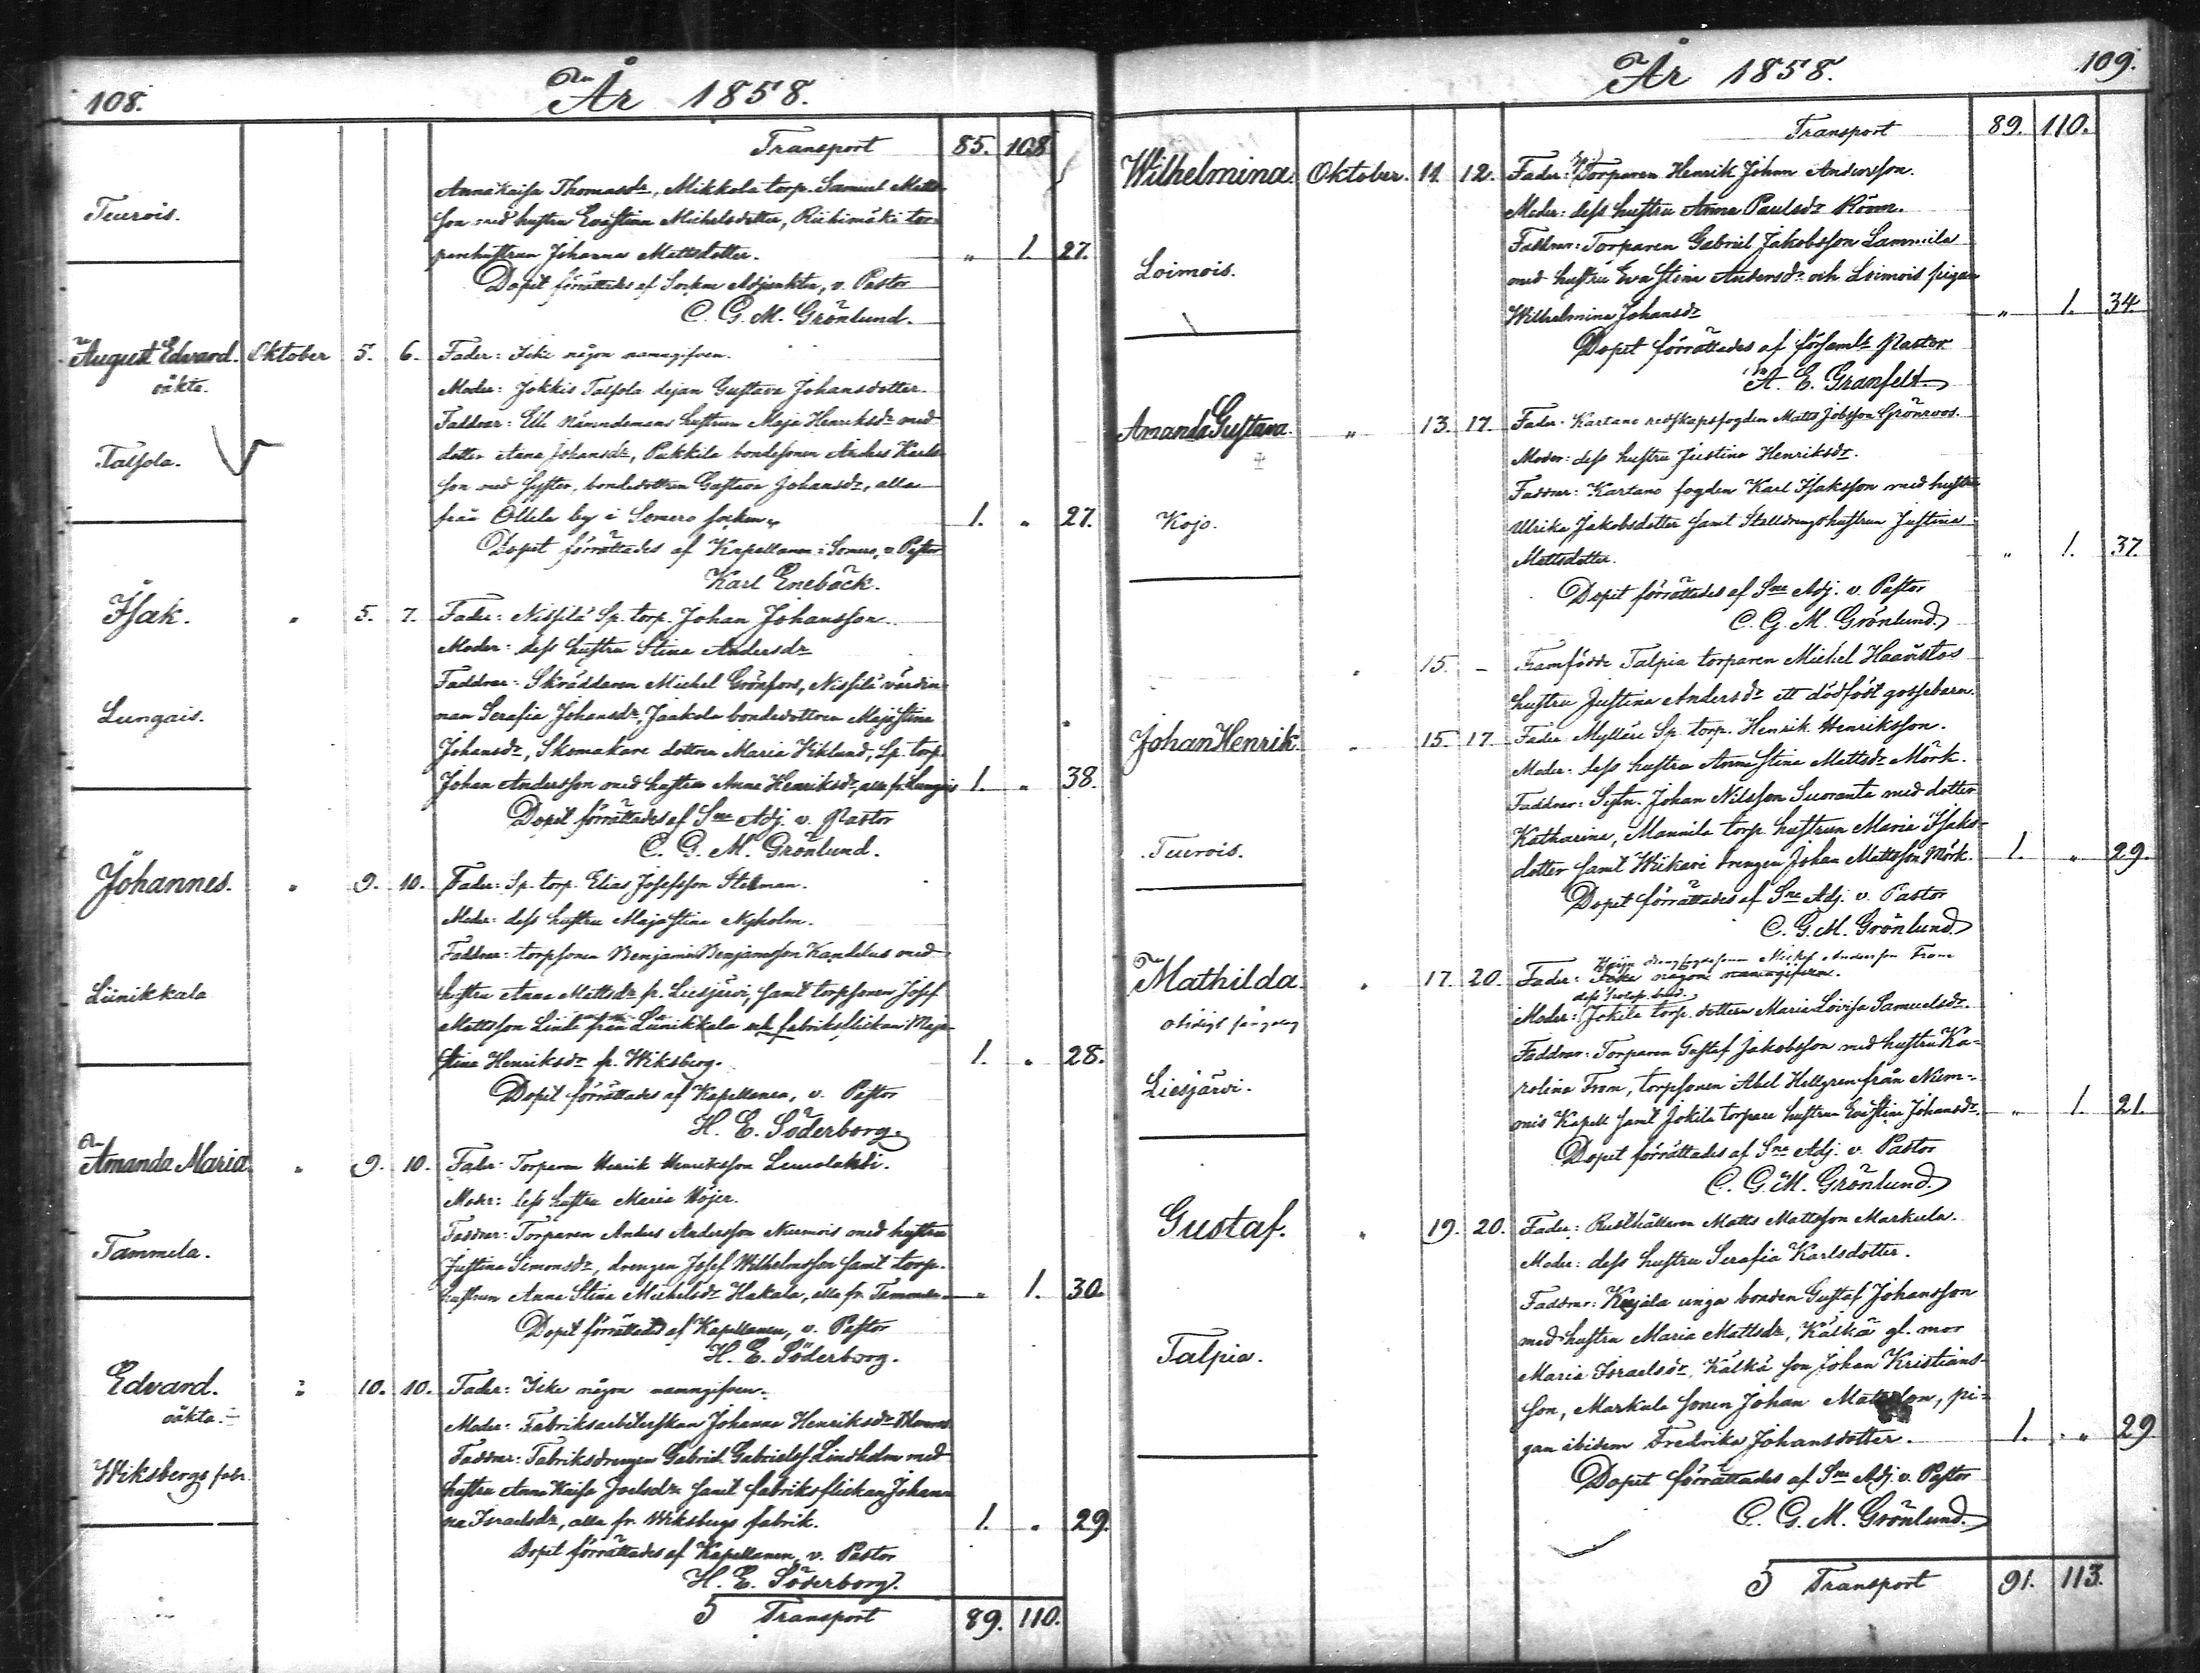 108.
År 1858.
Transport 85. 108
Teurois.
Anna Kaisa Thomasdr, Mikkola torp. Samuel Matts-
son med hustru Eva Stina Michelsdotter, Riihimäki tor-
parehustrun Johanna Mattsdotter. " 1. 27.
Dopet förrättades af Sockne Adjunkten, v. Pastor
C. G. M. Grönlund.
August Edvard. Oktober 5. 6. Fader: Icke någon namngifven.
oäkta.
Moder: Jokkis Talsola dejan Gustava Johansdotter.
Faddrar: Nämndemans hustrun Maja Henriksdr med
Talsola.
dotter Anna Johansdr, Pukkila bondesonen Anders Karls-
son med syster, bondedottren Gustava Johansdr, alla
från Ollila by i Somero socken. 1. " 27.
Dopet förrättades af Kapellanen i Somero, v. Pastor
Karl Enebäck.
Isak. " 5. 7. Fader: Nissilä Sp. torp. Johan Johansson.
Moder: dess hustru Stina Andersdr
Faddrar: Skräddaren Michel Grönfors, Nissilä värdin-
Lungais.
nan Serafia Johansdr, Jaakola bondedottren Maja Stina
Johansdr, Skomakare dottren Maria Viklund, Sp. torp.
Johan Andersson med hustru Anna Henriksdr, alla fr. Lungais 1. " 38.
Dopet förrättades af Sne Adj. v. Pastor
C. G. M. Grönlund.
Johannes. " 9. 10. Fader: Sp. torp. Elias Josefsson Stelman.
Moder: dess hustru Maja Stina Nyholm.
Faddrar: torpsonen Benjamin Benjaminsson Kandelus med
Liinikkala
hustru Anna Mattsdr fr. Liesjärvi, samt torpsonen Josef
Mattsson Lindl från Liinikkala och fabriksflickan Maja
Stina Henriksdr fr. Wiksberg. 1. " 28.
Dopet förrättades af Kapellanen, v. Pastor
H. E. Söderborg.
Amanda Maria " 9. 10. Fader: Torparen Henrik Henriksson Leurolakti.
Moder: dess hustru Maria Höjer.
Faddrar: Torparen Anders Andersson Nurmois med hustru
Tammela.
Justina Simonsdr, drengen Josef Wilhelmsson samt torp.
hustrun Anna Stina Michelsdr Hakala, alla fr. Tammela " 1. 30.
Dopet förrättades af Kapellanen, v. Pastor
H. E. Söderborg.
Edvard. " 10. 10. Fader: Icke någon namngifven.
oäkta.
Moder: Fabriksarbeterskan Johanna Henriksdr
Faddrar: Fabriksdrengen Gabriel Gabrielss Lindholm med
Wiksbergs fabr.
hustru Anna Kaisa Joelsdr samt fabriksflickan Johan-
na Israelsdr, alla fr. Wiksbergs fabrik. 1. " 29.
Dopet förrättades af Kapellanen, v. Pastor
H. E. Söderborg.
5 Transport 89. 110.
År 1858.
109.
Transport 89. 110.
Wilhelmina. Oktober. 11. 12. Fader: Torparen Henrik Johan Andersson.
Moder: dess hustru Anna Paulsdr Room.
Faddrar: Torparen Gabriel Jakobsson Lammila
Loimois.
med hustru Eva Stina Andersdr och Loimois pigan
Wilhelmina Johansdr " 1. 34.
Dopet förrättades af församls Pastor
A. E. Granfelt
Amanda Gustava. " 13. 17. Fader: Kartano redskapsfogden Matts Jobsson Grönroos.
Moder: dess hustru Justina Henriksdr.
Faddrar: Kartano fogden Karl Isaksson med hustru
Kojo.
Ulrika Jakobsdotter samt Stalldrengshustrun Justina
Mattsdotter. " 1. 37
Dopet förrättades af Sne Adj. v. Pastor
C. G. M. Grönlund.
" 15. – Framfödde Talpia torparen Michel Haavistos
hustru Justina Andersdr ett dödfödt gossebarn.
Johan Henrik " 15. 17 Fader: Mylläri Sp. torp. Henrik Henriksson.
Moder: dess hustru Anna Stina Mattsdr Mörk.
Faddrar: Sytn. Johan Nilsson Suoranta med dotter
Teurois.
Katharina, Mannila torp. hustrun Maria Isaks-
dotter samt Wiikari drengen Johan Mattsson Mörk. 1. " 29.
Dopet förrättades af Sne Adj. v. Pastor
C. G. M. Grönlund.
Michel Andersson From
Mathilda " 17. 20. Fader: Icke någon namngifven.
dess trolof. brud.
Moder: Jokila torp. dottern Maria Lovisa Samuelsdr.
Faddrar: Torparen Gustaf Jakobsson med hustru Ka-
Liesjärvi.
rolina From, torpsonen Abel Hellgren från Num-
mis Kapell samt Jokila torpare hustrun Eva Stina Johansdr. " 1. 21.
Dopet förrättades af Sne Adj. v. Pastor
C. G. M. Grönlund.
Gustaf. " 19. 20. Fader: Rusthållaren Matts Mattsson Markula.
Moder: dess hustru Serafia Karlsdotter.
Faddrar: Kujala unga bonden Gustaf Johansson
Talpia.
med hustru Maria Mattsdr, Kälkä gl. mor
Maria Israelsdr, Kälkä son Johan Kristians-
son, Markula sonen Johan Mattsson, pi-
gan ibidem Fredrika Johansdotter. 1. " 29
Dopet förrättades af Sne Adj. v. Pastor
C. G. M. Grönlund.
5 Transport 91. 113.